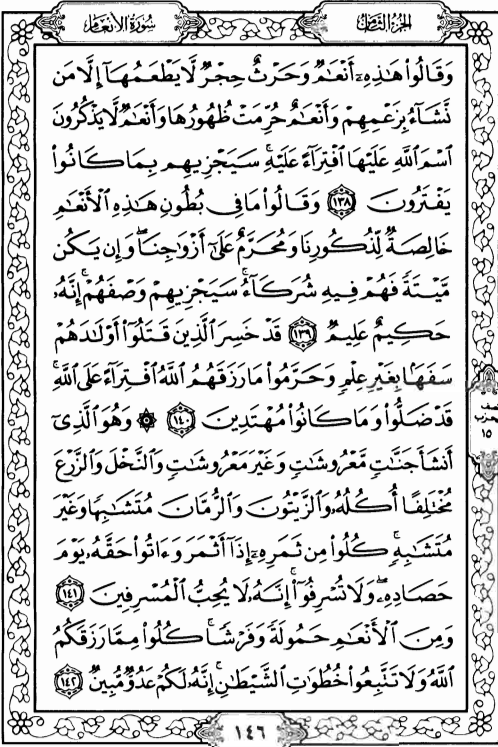 سُورَةُ الأنعَام
الجزء الثامن
وَقَالُوا۟ هَـٰذِهِۦٓ أَنْعَـٰمٌ وَحَرْثٌ حِجْرٌ لَّا يَطْعَمُهَآ إِلَّا مَن
نَّشَآءُ بِزَعْمِهِمْ وَأَنْعَـٰمٌ حُرِّمَتْ ظُهُورُهَا وَأَنْعَـٰمٌ لَّا يَذْكُرُونَ
ٱسْمَ ٱللَّهِ عَلَيْهَا ٱفْتِرَآءً عَلَيْهِ ۚ سَيَجْزِيهِم بِمَا كَانُوا۟
يَفْتَرُونَ ﴿١٣٨﴾ وَقَالُوا۟ مَا فِى بُطُونِ هَـٰذِهِ ٱلْأَنْعَـٰمِ
خَالِصَةٌ لِّذُكُورِنَا وَمُحَرَّمٌ عَلَىٰٓ أَزْوَٰجِنَا ۖ وَإِن يَكُن
مَّيْتَةً فَهُمْ فِيهِ شُرَكَآءُ ۚ سَيَجْزِيهِمْ وَصْفَهُمْ ۚ إِنَّهُۥ
حَكِيمٌ عَلِيمٌ ﴿١٣٩﴾ قَدْ خَسِرَ ٱلَّذِينَ قَتَلُوٓا۟ أَوْلَـٰدَهُمْ
سَفَهًۢا بِغَيْرِ عِلْمٍ وَحَرَّمُوا۟ مَا رَزَقَهُمُ ٱللَّهُ ٱفْتِرَآءً عَلَى ٱللَّهِ ۚ
قَدْ ضَلُّوا۟ وَمَا كَانُوا۟ مُهْتَدِينَ ﴿١٤٠﴾ ۞ وَهُوَ ٱلَّذِىٓ
أَنشَأَ جَنَّـٰتٍ مَّعْرُوشَـٰتٍ وَغَيْرَ مَعْرُوشَـٰتٍ وَٱلنَّخْلَ وَٱلزَّرْعَ
مُخْتَلِفًا أُكُلُهُۥ وَٱلزَّيْتُونَ وَٱلرُّمَّانَ مُتَشَـٰبِهًا وَغَيْرَ
مُتَشَـٰبِهٍ ۚ كُلُوا۟ مِن ثَمَرِهِۦٓ إِذَآ أَثْمَرَ وَءَاتُوا۟ حَقَّهُۥ يَوْمَ
حَصَادِهِۦ ۖ وَلَا تُسْرِفُوٓا۟ ۚ إِنَّهُۥ لَا يُحِبُّ ٱلْمُسْرِفِينَ ﴿١٤١﴾
وَمِنَ ٱلْأَنْعَـٰمِ حَمُولَةً وَفَرْشًا ۚ كُلُوا۟ مِمَّا رَزَقَكُمُ
ٱللَّهُ وَلَا تَتَّبِعُوا۟ خُطُوَٰتِ ٱلشَّيْطَـٰنِ ۚ إِنَّهُۥ لَكُمْ عَدُوٌّ مُّبِينٌ ﴿١٤٢﴾
١٥
١٤٦